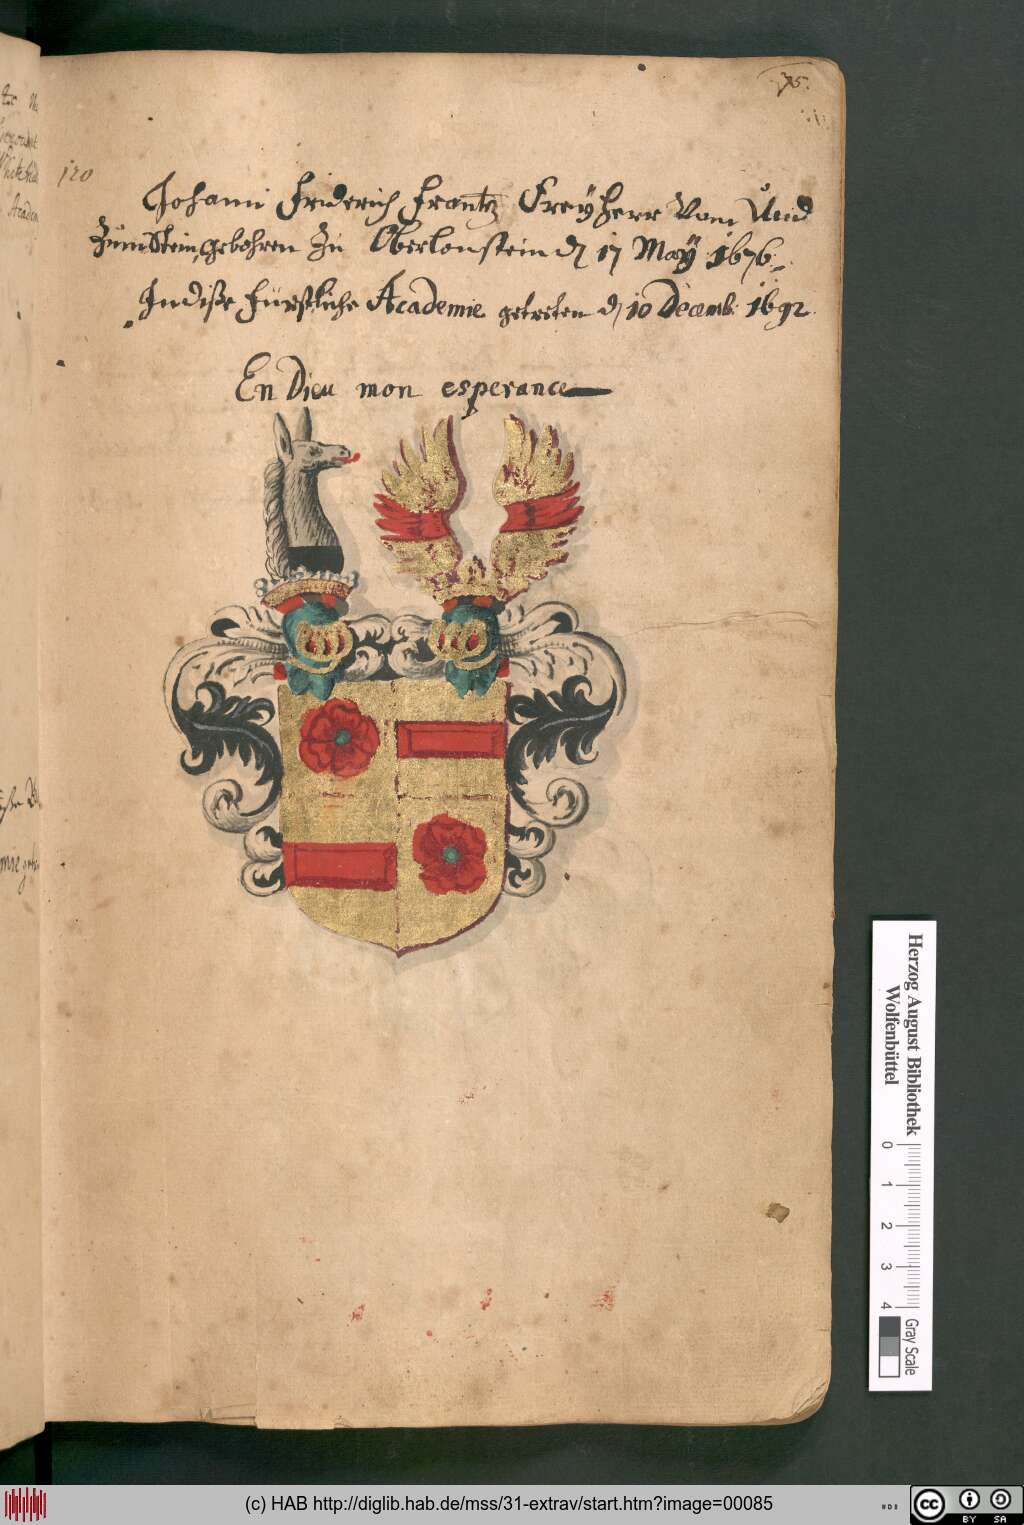 75.
120
Johann Friderich Frantz FreyHerr Vom Und
Zum Stein, gebohren Zu Oberlonstein d 17 May 1676
In dise Fürstliche Academie getreten d 10 Decemb: 1692
En Dieu mon esperance
Academ
Herzog August Bibliothek
Wolfenbüttel
0 1 2 3 4
Gray Scale
(c) HAB http://diglib.hab.de/mss/31-extrav/start.htm?image=00085
cc BY SA